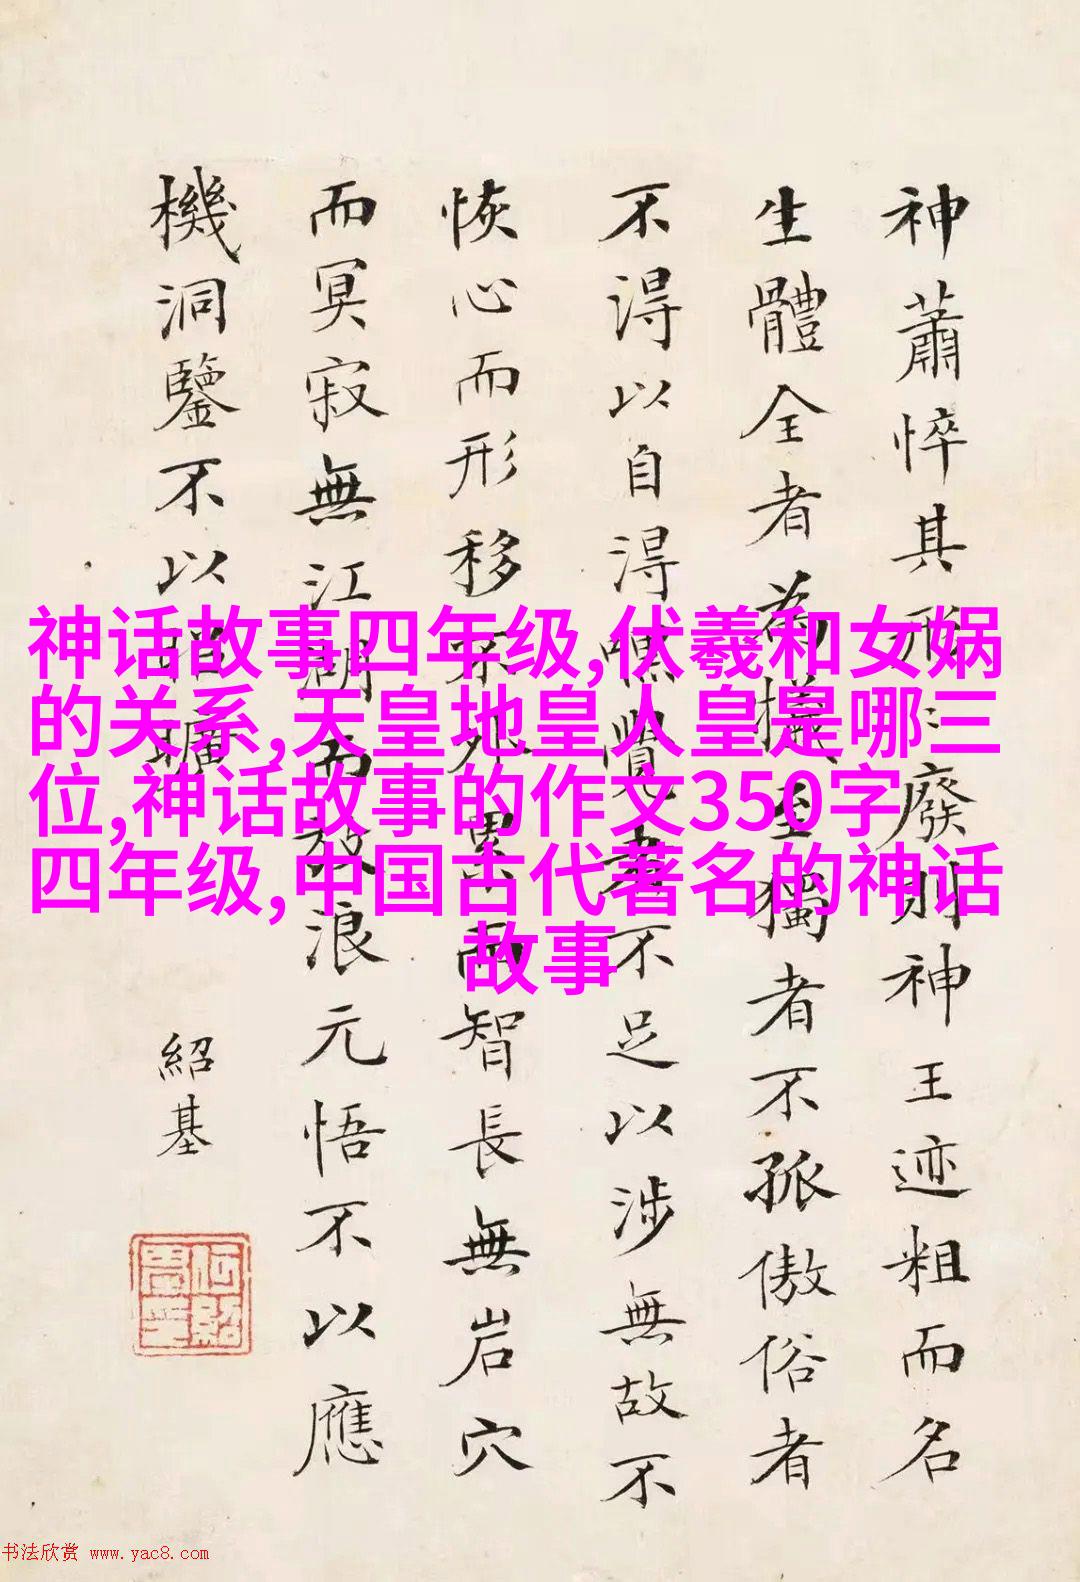 神蕭悴其形〻廢則神王迹粗而名
生體全者為犧至獨者不孤傲俗者
不得以自得嘿覺者不足以涉無故不
恢心而形移不外累而智長無岩穴
而冥寂無江湖而放浪元悟不以應
機洞鑒不以昭曠
紹基
神话故事四年级,伏羲和女娲
的关系,天皇地皇人皇是哪三
位,神话故事的作文350字
四年级,中国古代著名的神话
故事
书法欣赏 www.yac8.com